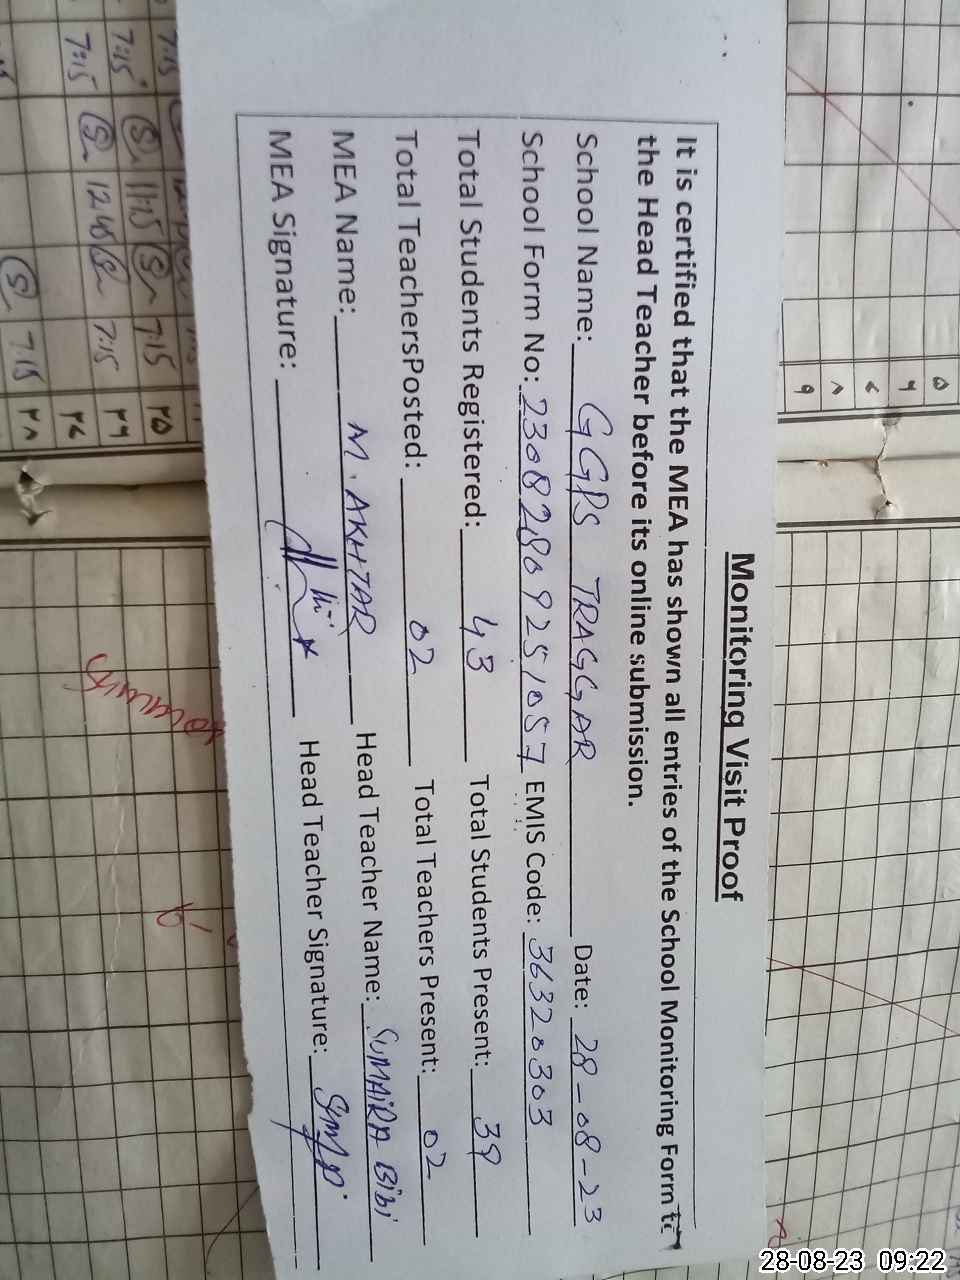 Monitoring Visit Proof
It is certified that the MEA has shown all entries of the School Monitoring Form to
the Head Teacher before its online submission.
School Name: GGPS TRAGGAR Date: 28-08-23
School Form No: 23082809251057 EMIS Code: 36320303
Total Students Registered: 43 Total Students Present: 39
Total TeachersPosted: 02 Total Teachers Present: 02
MEA Name: M. AKHTAR Head Teacher Name: SUMAIRA Bibi
MEA Signature: Head Teacher Signature:
7:15
7:15 11:15 7:15
7:15 12:45 7:15
7:15
۲۵
۲۶
۲۷
۲۸
۵
۶
۷
۸
۹
28-08-23 09:22